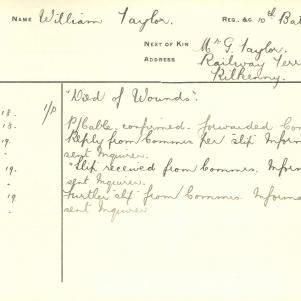 NAME William Taylor. REG., &C. 10th Bat
NEXT OF KIN Mr G. Taylor.
ADDRESS Railway Terr
Kilkenny.
18. I/P "Died of Wounds".
18. P/Cable confirmed. Forwarded Co
19. Reply from Commis per slip Inform
sent Inquirer.
19. "Slip" received from Commis. Inform
sent Inquirer.
Further "slip" from Commis. Informa
sent Inquirer